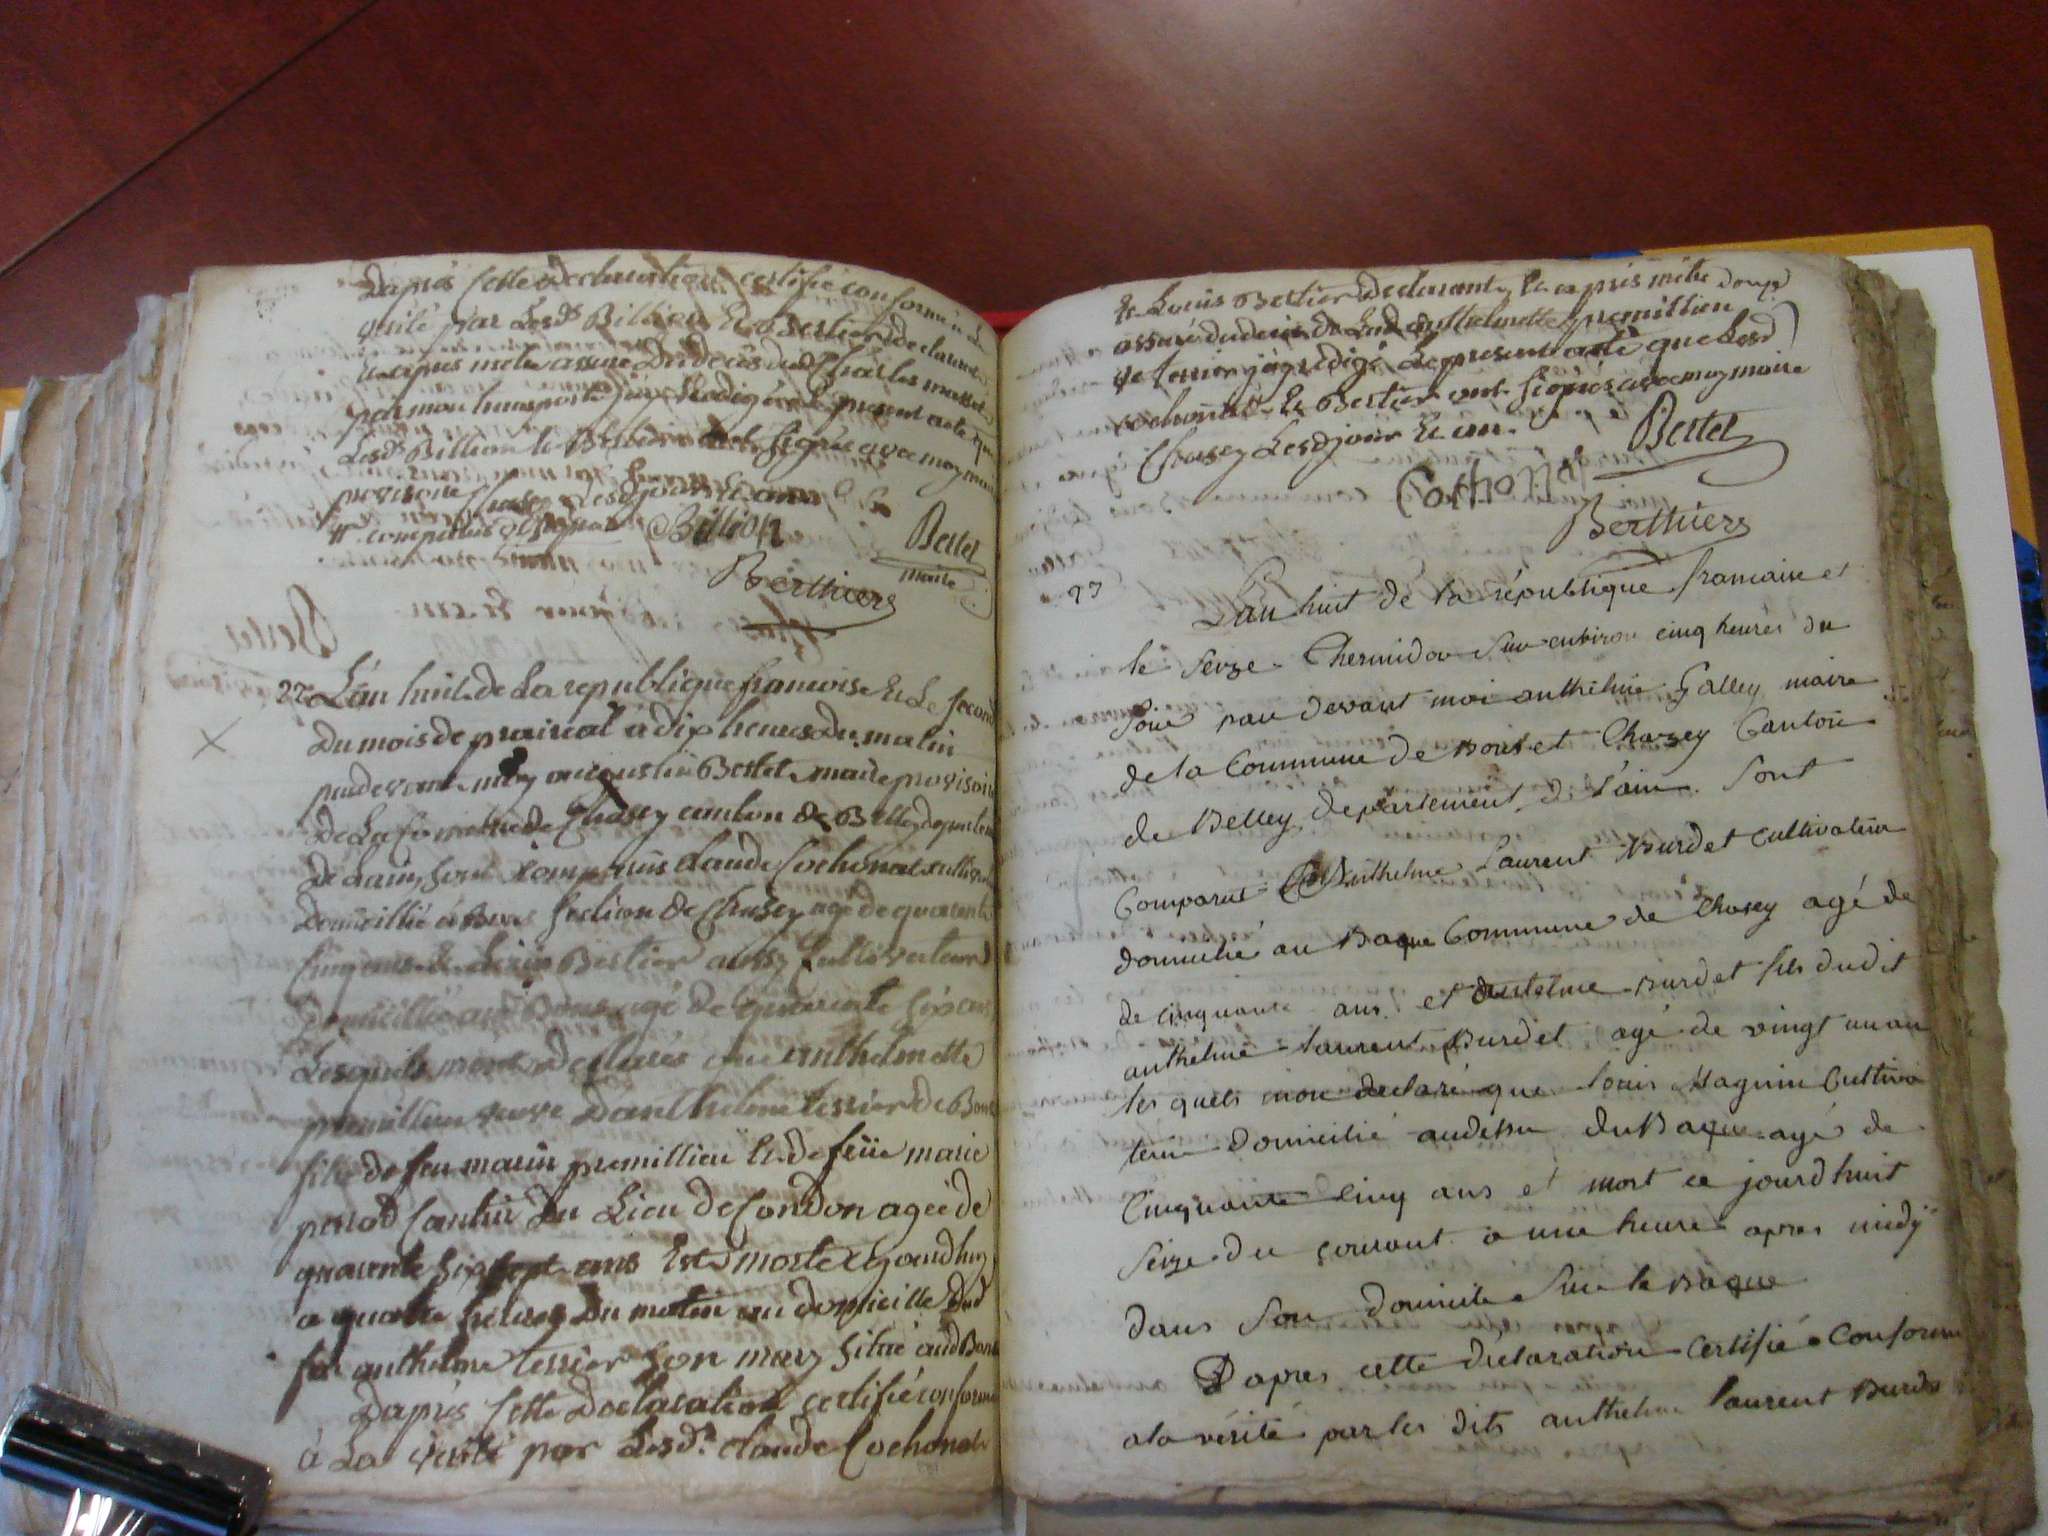 Dapres cette declaration certifié conforme a la
verité par Lesds Billion Et Bertier declarant
Et apres metre assuré Du deces dud Charles
par mon transporte j'ay Redigé le present acte que
Lesds Billion Et Bertier ont signés avec moy maire
provisoire Chasey Lesd jour Et an
Billion
Bertet
maire
Berthiers
22 L'an huit de La republique francoise Et Le second
Du mois de prairial à dix heures Du matin
pardevant moy augustin Bertet maire provisoire
De La Commune de Chasey canton de Belley departem
De Lain, sont comparus claude Cochonat cultivateur
Domicillié à Bons section de Chasey agé de quarante
cinq ans & Louis Bertier aussy cultivateur
Domicillié aud Bons agé de quarante six ans
Lesquels mont declarés que anthelmette
premillieu veuve D'anthelme tessier de Bons
fille de feu marin premillieu Et de feüe marie
du Lieu de Condon agée de
quarente sept ans Est morte aujourdhuy
a quatre heures Du matin au domicille dud
feu anthelme tessier son mary situé aud Bons
Dapres cette Declaration certifié conforme
à La verité par Lesds claude Cochonat
Et Louis Bertier Declarant, Et apres métre
assuré du deces de lad anthelmette premillieu
j'ay redigé Le present acte que Lesd
cochonat & Bertier ont signés avec moy maire
Chasey Lesd jour Et an.
Bertet
Cochonat
Berthiers
23
L'an huit de la république francaise et
le seize Thermidor sur environ cinq heures du
soir par devant moi anthelme Galley maire
de la Commune de Bons et Chasey Canton
de Belley, departement de l'ain. sont
Comparut Anthelme Laurent Burdet cultivateur
domicilié au Baque Commune de Chasey agé de
de cinquante ans et antelme Burdet fils dudit
anthelme laurent Burdet agé de vingt un an
les quels mon declaré que louis Magnin Cultiva
teur domicilié au du Baque agé de
Cinquante cinq ans et mort ce jourdhuit
seize du courant a une heure apres midÿ
dans son domicile sur le Baque
Dapres cette declaration certifié Conforme
a la vérité par les dits anthelme laurent Burdet